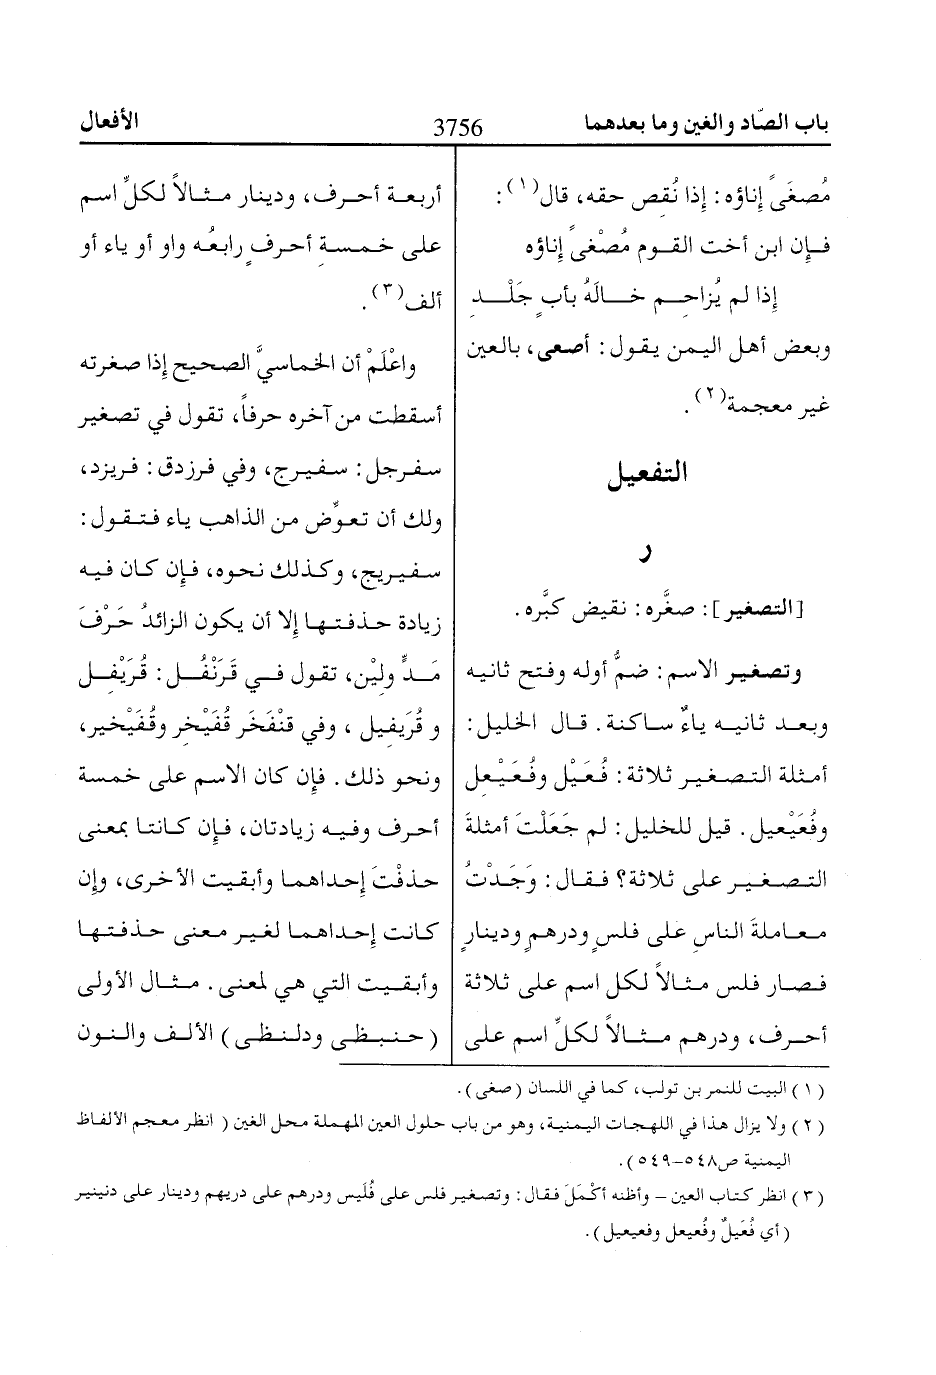 باب الصّاد والغين وما بعدهما
3756
الأفعال
مُصغَىً إناؤه: إذا نُقص حقه، قال(١):
فإن ابن أخت القوم مُصْغىً إناؤه
إذا لم يُزاحِم خالَهُ بأبٍ جَلْدِ
وبعض أهل اليمن يقول: أصعى، بالعين
غير معجمة(٢).
التفعيل
ر
[التصغير]: صغَّره: نقيض كبَّره.
وتصغير الاسم: ضمُّ أوله وفتح ثانيه
وبعد ثانيه ياءٌ ساكنة. قال الخليل:
أمثلة التصغير ثلاثة: فُعَيْل وفُعَيْعِل
وفُعَيْعيل. قيل للخليل: لم جَعَلْتَ أمثلةَ
التصغير على ثلاثة؟ فقال: وَجَدْتُ
معاملةَ الناس على فلسٍ ودرهمٍ ودينارٍ
فصار فلس مثالاً لكل اسم على ثلاثة
أحرف، ودرهم مثالاً لكلِّ اسم على
أربعة أحرف، ودينار مثالاً لكلِّ اسم
على خمسةِ أحرفٍ رابعُه واو أو ياء أو
ألف(٣).
واعْلَمْ أن الخماسيَّ الصحيح إذا صغرته
أسقطت من آخره حرفاً، تقول في تصغير
سفرجل: سفيرج، وفي فرزدق: فريزد،
ولك أن تعوِّض من الذاهب ياء فتقول:
سفيريج، وكذلك نحوه، فإن كان فيه
زيادة حذفتها إلا أن يكون الزائدُ حَرْفَ
مَدٍّ ولِيْن، تقول في قَرَنْفُل: قُرَيْفِل
و قُرَيفيل ، وفي قنْفَخَر قُفَيْخر وقُفَيْخير،
ونحو ذلك. فإن كان الاسم على خمسة
أحرف وفيه زيادتان، فإن كانتا بمعنى
حذفْتَ إحداهما وأبقيت الأخرى، وإن
كانت إحداهما لغير معنى حذفتها
وأبقيت التي هي لمعنى. مثال الأولى
(حنبظى ودلنظى) الألف والنون
(١) البيت للنمر بن تولب، كما في اللسان (صغى).
(٢) ولا يزال هذا في اللهجات اليمنية، وهو من باب حلول العين المهملة محل الغين ( انظر معجم الألفاظ
اليمنية ص٥٤٨-٥٤٩).
(٣) انظر كتاب العين – وأظنه أكْمَلَ فقال: وتصغير فلس على فُلَيس ودرهم على دريهم ودينار على دنينير
(أي فُعَيلٌ وفُعيعل وفعيعيل).